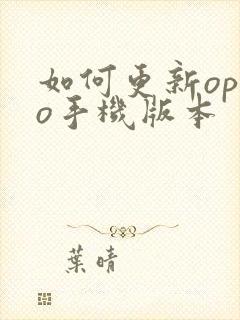 如何更新op
o手機版本
葉晴